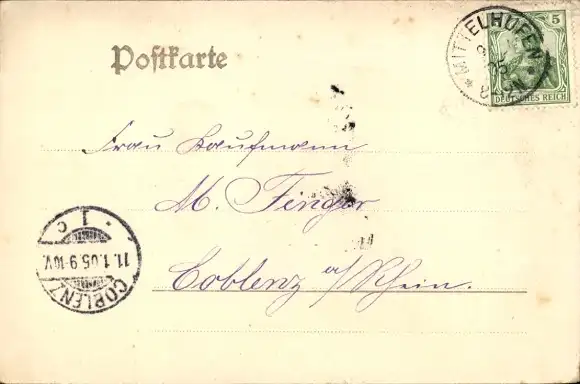 Postkarte
5
DEUTSCHES REICH
* MITTELHUFEN *
Frau Kaufmann
M. Finger
Coblenz a/Rhein.
* COBLENZ *
11.1.05.9-10V.
1 c